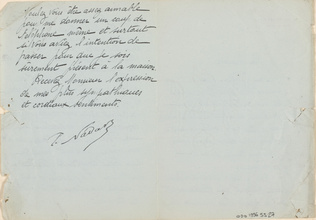 Voulez vous être assez aimable
pour me donner un coup de
téléphone même et surtout
si vous avez l'intention de
passer pour que je sois
sûrement présent à la maison
Recevez Monsieur l'expression
de mes plus sympathiques
et cordiaux sentiments.